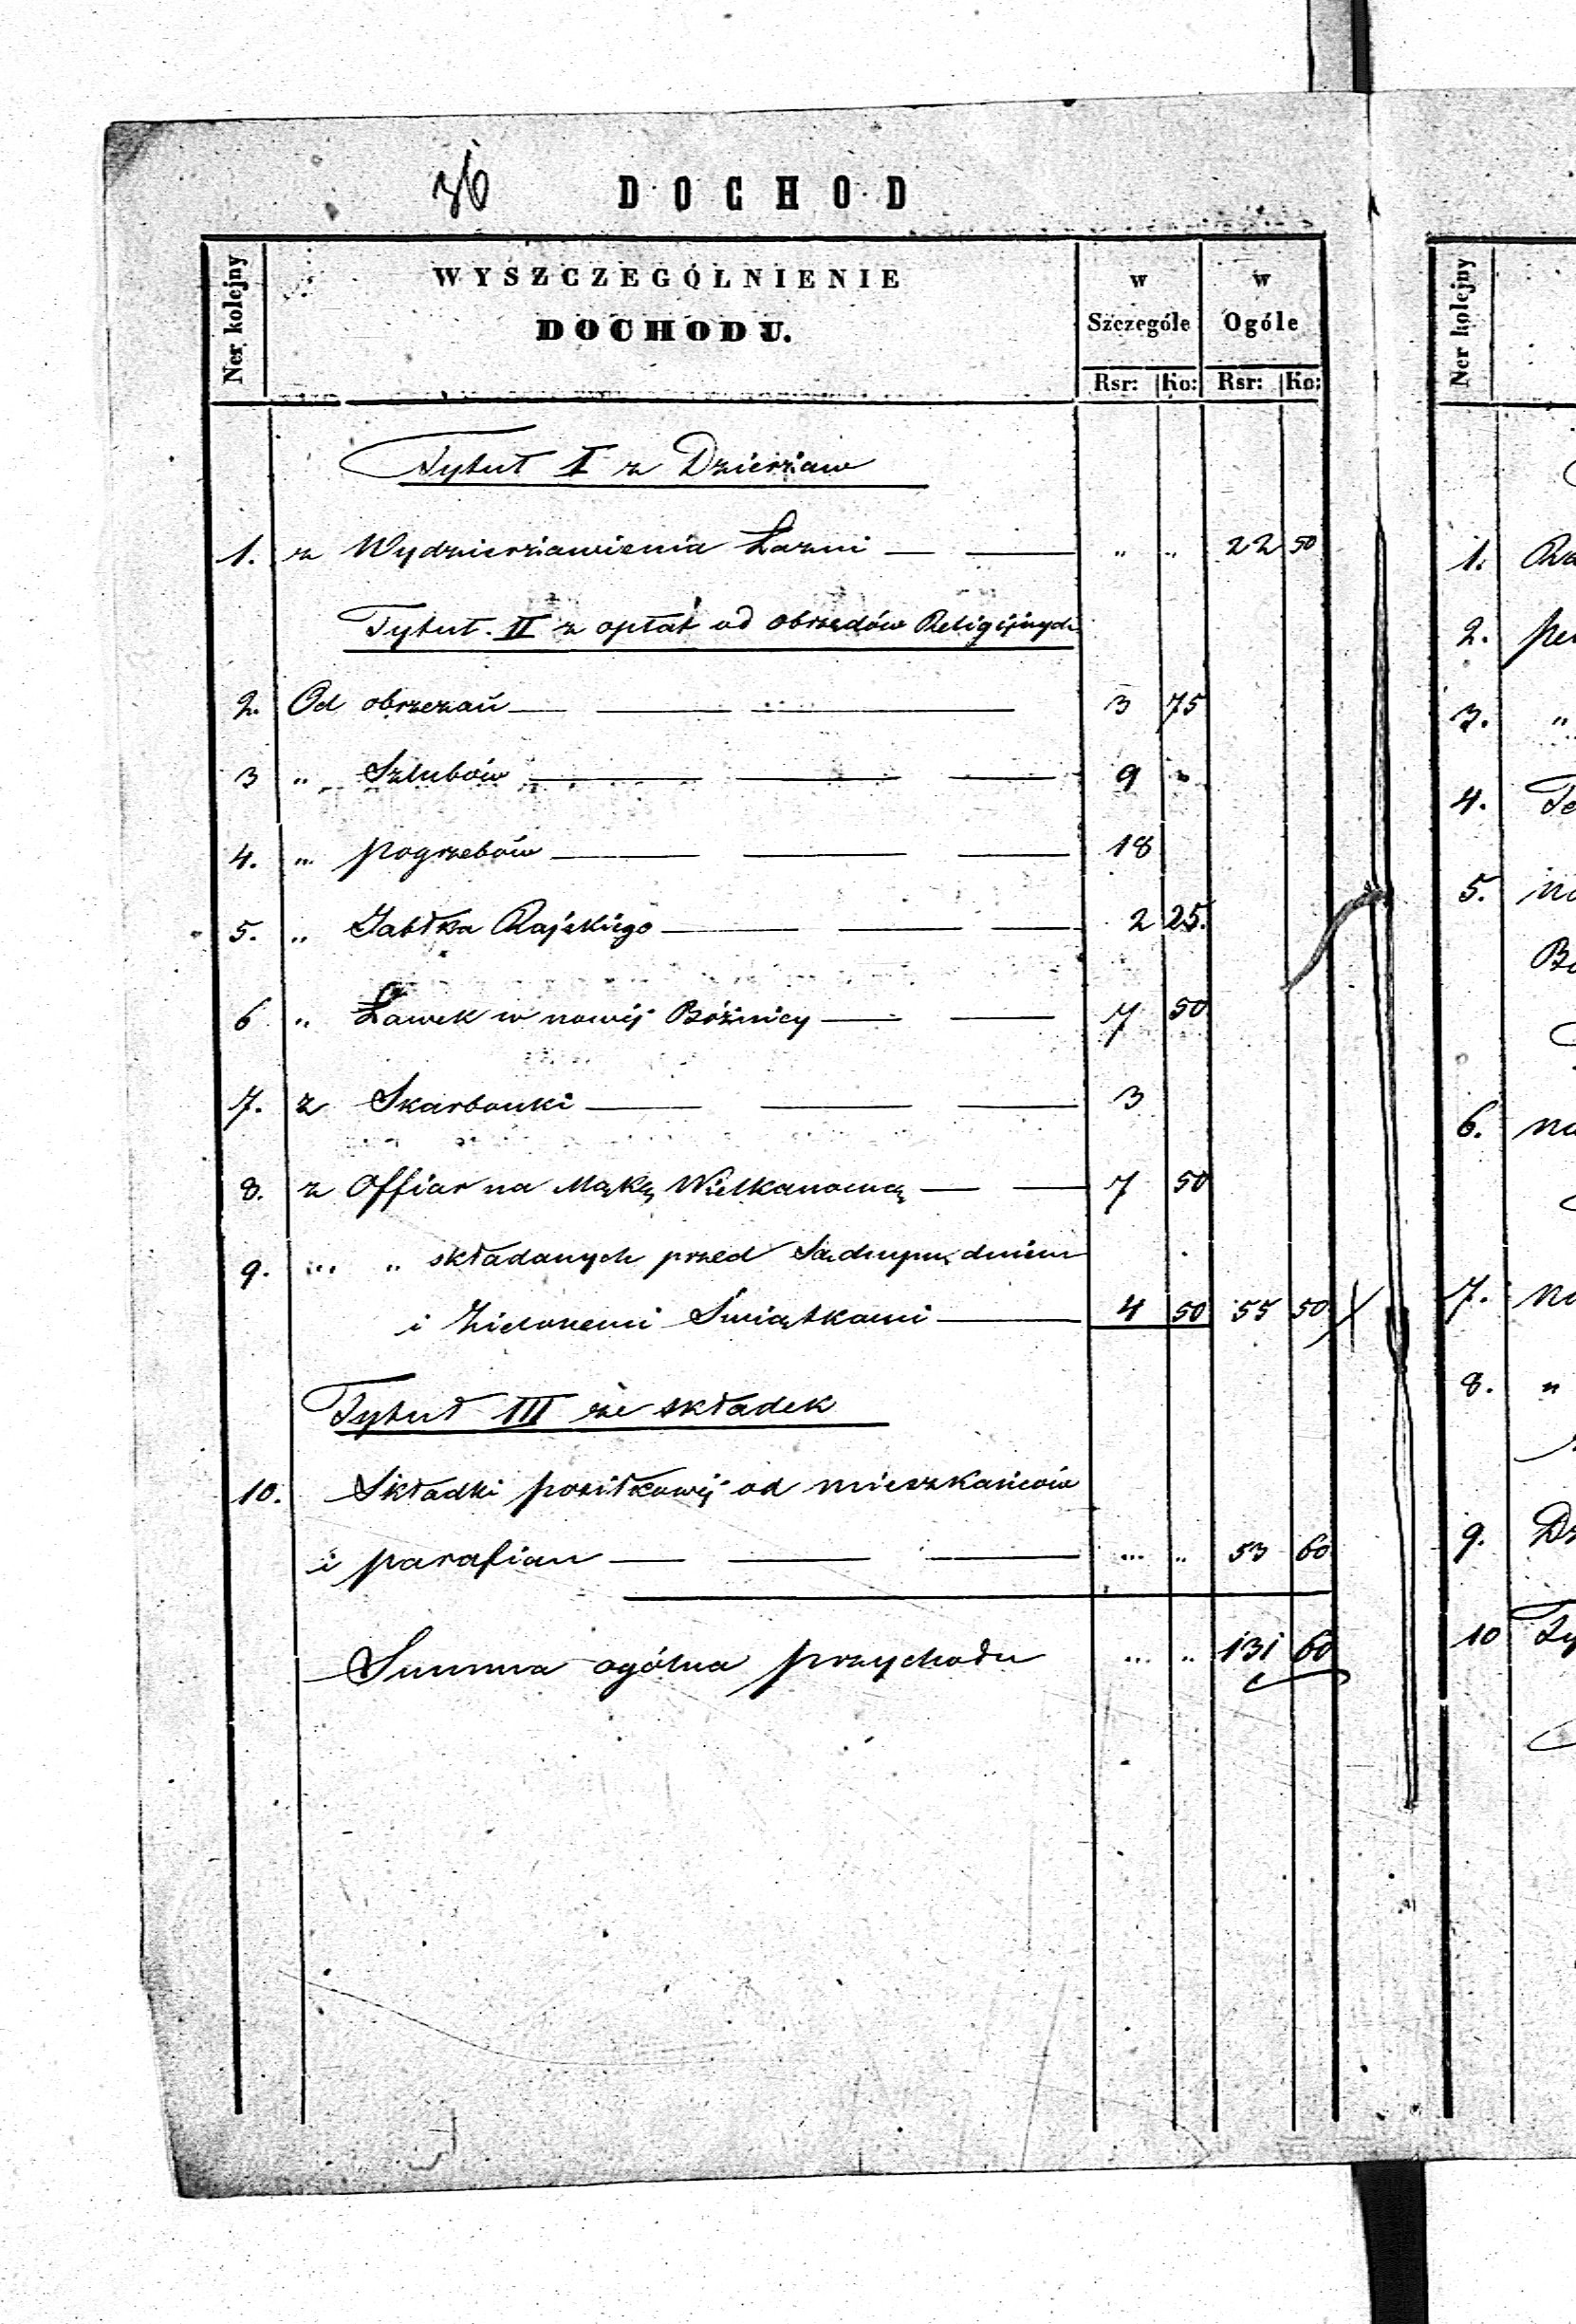 36
DOCHOD
Ner kolejny
WYSZCZEGÓLNIENIE
DOCHODU.
w Szczególe
w Ogóle
Rsr: Ko: Rsr: Ko:
Tytuł I z Dzierżaw
1. z Wydzierżawienia Łazni — — " " 22 50
Tytuł II z opłat od obrzędów Religijnych
2. Od obrzezań — — — 3 75
3 " Szlubów — — — 9 "
4. " pogrzebów — — — 18
5. " Jabłka Rajskiego — — — 2 25.
6 " Ławek w nowéj Bóżnicy — — 7 50
7. z Skarbonki — — — 3
8. z Offiar na Mąkę Wielkanocną — — 7 50
9. " " składanych przed dniem
i Zielonemi Świątkami — 4 50 55 50
Tytuł III ze składek
10. Składki posiłkowéj od mieszkańców
i parafian — — — " " 53 60
Summa ogólna przychodu " " 131 60
Ner kolejny
1.
2.
3. "
4.
5.
6. na
7.
8. "
9.
10